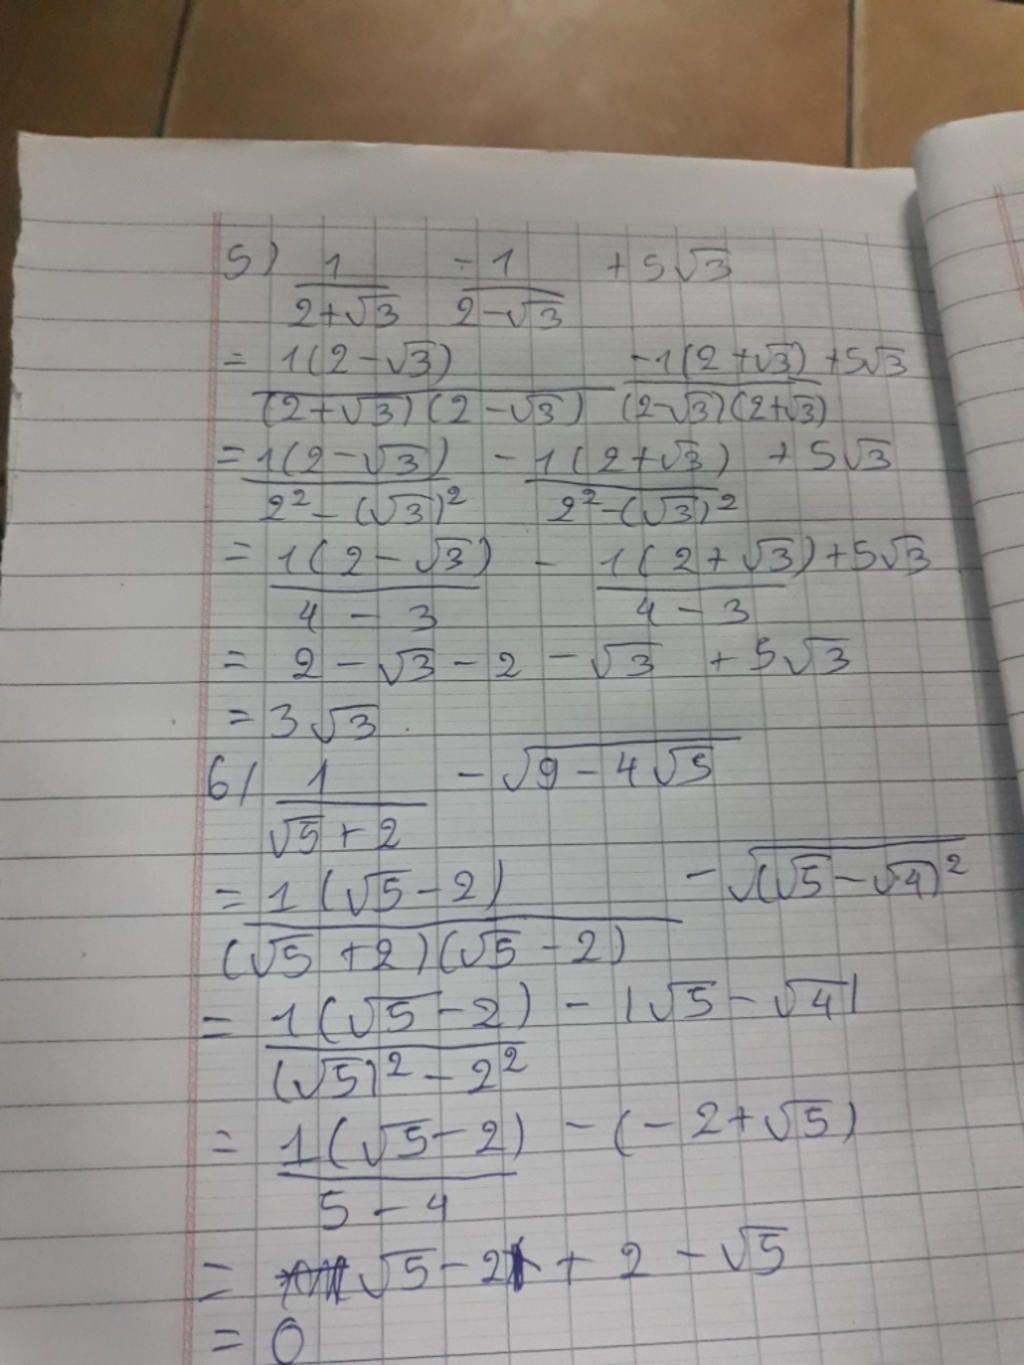 5) 1/(2+√3) - 1/(2-√3) + 5√3
= 1(2-√3)/((2+√3)(2-√3)) - 1(2+√3)/((2-√3)(2+√3)) + 5√3
= 1(2-√3)/(2² - (√3)²) - 1(2+√3)/(2² - (√3)²) + 5√3
= 1(2-√3)/(4 - 3) - 1(2+√3)/(4 - 3) + 5√3
= 2 - √3 - 2 - √3 + 5√3
= 3√3.
6/ 1/(√5+2) - √(9 - 4√5)
= 1(√5-2)/((√5+2)(√5-2)) - √((√5-√4)²)
= 1(√5-2)/((√5)² - 2²) - |√5-√4|
= 1(√5-2)/(5 - 4) - (-2+√5)
= √5-2 + 2 - √5
= 0